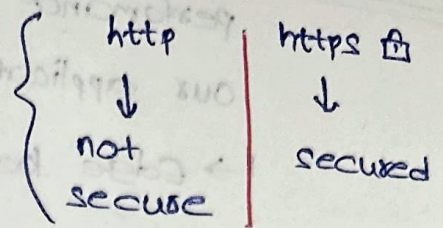 http
↓
not
secure
https 🔒
↓
secured